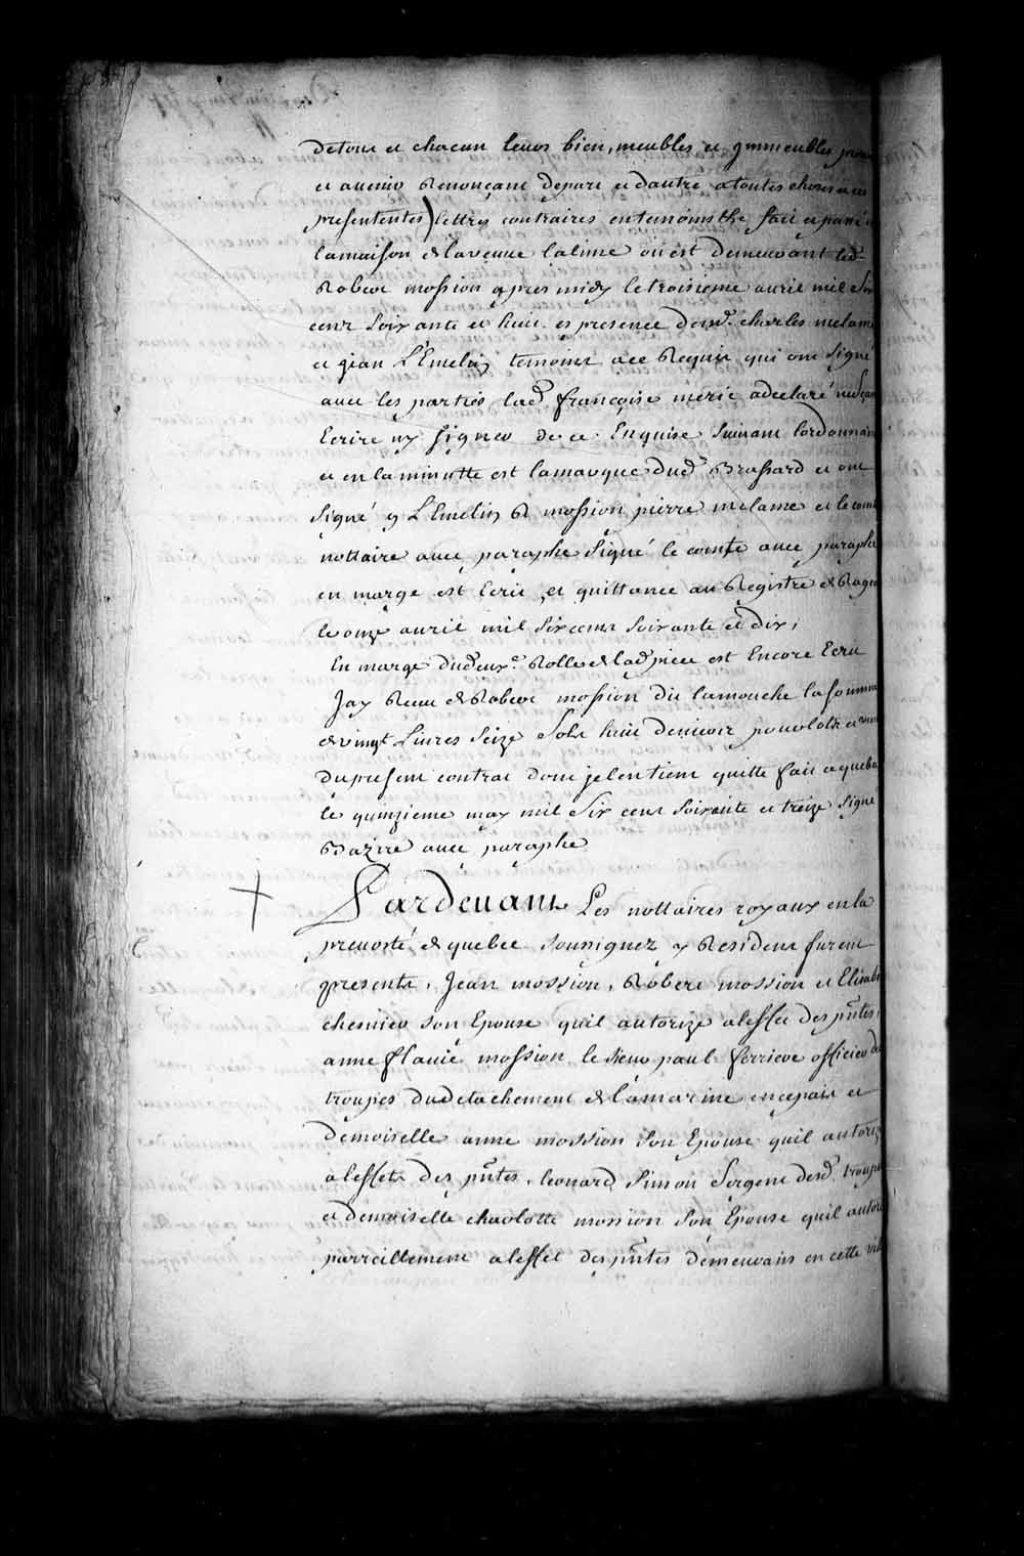 detous et chacun leurs bien, meubles et ymmeubles
et auenir Renonçant depart et dautre atoutes choses
presententes) lettres contraires entemoins &c fait et passé
lamaison & laveuue lalime ou est demeurant led.
Robert mossion apres midy letroisieme auril mil six
cent soixante et huit es presence desd. charles
et Jean L'Emelin temoins ace Requis qui ont signé
auec les parties lad. françoise méric adeclaré
Ecrire ny signer de ce Enquise suiuant
et en la minutte est lamarque dud. Brassard et ont
signé y L'Emelin R mossion pierre et
nottaire auec paraphe signé le comte auec paraphe
en marge est Ecrit et quittance au Registre &
le onze auril mil sixcens soixante et dix,
En marge dudeux.e Rolle & lad. piece est Encore Ecrit
Jay Receu & Robert mossion dit lamouche la somme
& vingt Liures seize sols huit deniers pour lots et
du present contrat dont jelentient quitte fait a
le quinzieme may mil six cent soixante et treize signé
Bazire auec paraphe
Pardeuant Les nottaires royaux en la
preuosté & quebec soussignez y Resident furent
presents, Jean mossion, Robert mossion et
chemier son Epouse quil autorize aleffet des pntes,
anne mossion le sieur paul ferriere officier
troupes dudetachement & lamarine encepais et
demoiselle anne mossion son Epouse quil
aleffets des pntes, leonard simon sergent desd.
et demoiselle charlotte mossion son Epouse quil
parreillement aleffet des pntes demeurans en cette